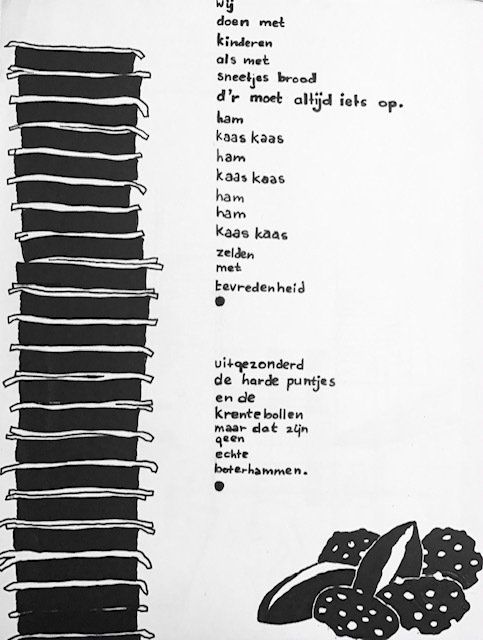 wij
doen met
kinderen
als met
sneetjes brood
d'r moet altijd iets op.
ham
kaas kaas
ham
kaas kaas
ham
ham
kaas kaas
zelden
met
tevredenheid
uitgezonderd
de harde puntjes
en de
krentebollen
maar dat zijn
geen
echte
boterhammen.